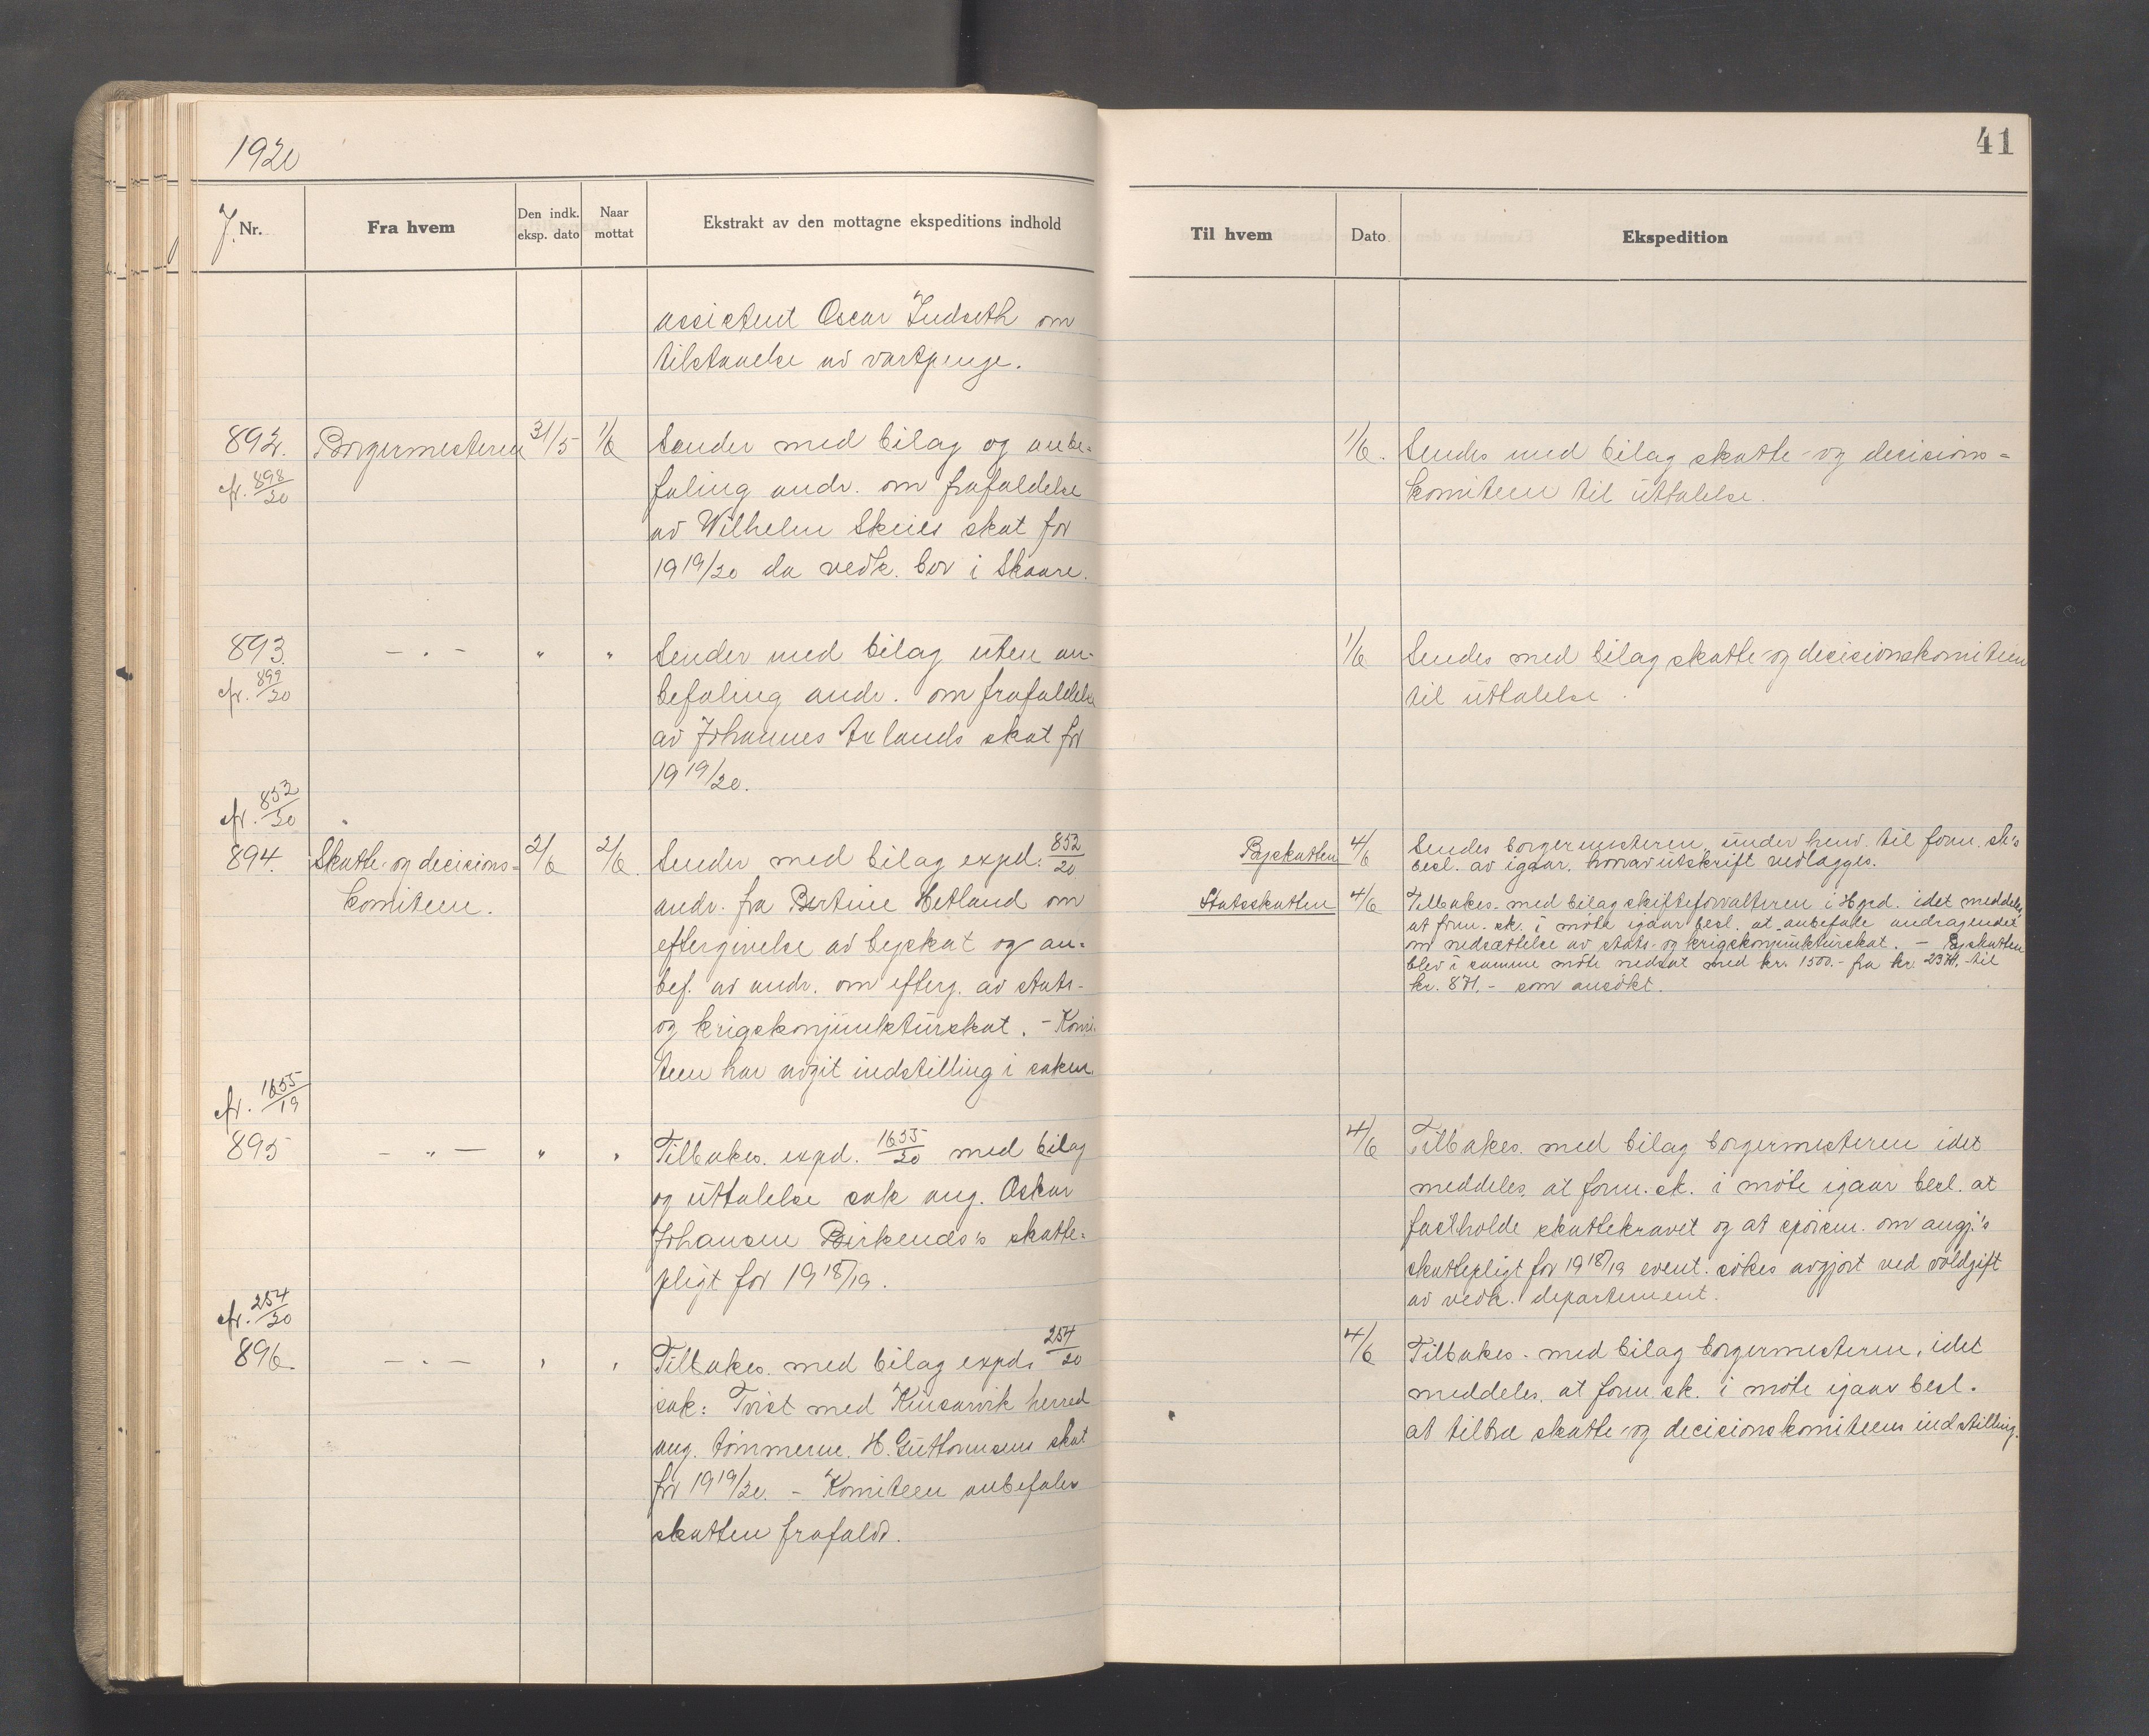 1920
41
J. Nr.
Fra hvem
Den indk. eksp. dato
Naar mottat
Ekstrakt av den mottagne ekspeditions indhold
Til hvem
Dato
Ekspedition
assistent Oscar Indseth om
tilstaaelse av vartpenge.
892.
cfr. 898/20
Borgermesteren
31/5
1/6
Sender med bilag og anbe-
faling andr. om frafaldelse
av Wilhelm Skeies skat for
1919/20 da vedk. bor i Skaare.
1/6.
Sendes med bilag skatte- og decisions-
komiteen til uttalelse.
893.
cfr. 899/20
— „ —
„
„
Sender med bilag uten an-
befaling andr. om frafaldelse
av Johannes Axlands skat for
1919/20.
1/6
Sendes med bilag skatte- og decisionskomiteen
til uttalelse.
cfr. 852/20
894.
Skatte- og decisions-
komiteen.
2/6
2/6.
Sender med bilag expd. 852/20
andr. fra Bertine Hetland om
eftergivelse av byskat og an-
bef. av andr. om efterg. av stats-
og krigskonjunkturskat. - Komi-
teen har avgit indstilling i saken.
Byskatten
4/6
Sendes borgermesteren under henv. til form.sk's
besl. av igaar, hvorav utskrift vedlægges.
Statsskatten
4/6
Tilbakes. med bilag skifteforvalteren i Hgsd. idet meddeles
at form. sk. i møte igaar besl. at anbefale andragendet
om nedsættelse av stats- og krigskonjunkturskat. — Byskatten
blev i samme møte nedsat med kr. 1500.- fra kr. 2371.- til
kr. 871.- som ansøkt.
cfr. 1655/19
895
— „ —
„
„
Tilbakes. expd. 1655/20 med bilag
og uttalelse sak ang. Oskar
Johansen Birkends's skatte-
pligt for 1918/19.
4/6
Tilbakes. med bilag borgermesteren idet
meddeles, at form. sk. i møte igaar besl. at
fastholde skattekravet og at spörsm. om angj.'s
skattepligt for 1918/19 event. søkes avgjort ved voldgift
av vedk. departement.
cfr. 254/20
896.
— „ —
„
„
Tilbakes. med bilag expd. 254/20
sak: Tvist med Kinsarvik herred
ang. tømmerm. H. Guttormsens skat
for 1919/20. - Komiteen anbefaler
skatten frafaldt.
4/6
Tilbakes. med bilag borgermesteren, idet
meddeles, at form. sk. i møte igaar besl.
at tiltræ skatte- og decisionskomiteens indstilling.